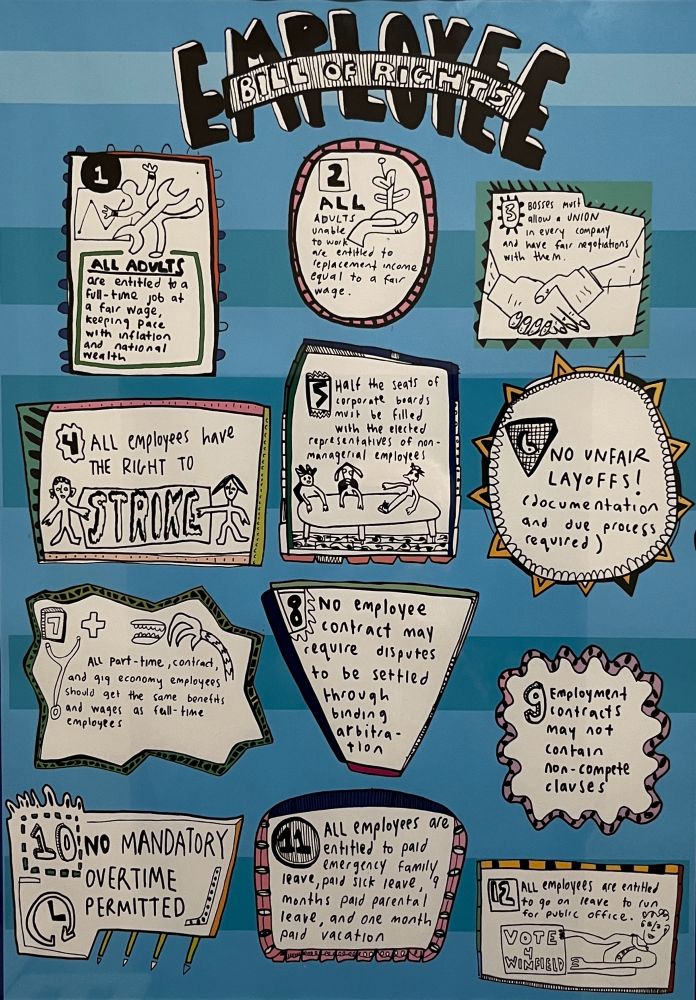 EMPLOYEE
BILL OF RIGHTS
1
ALL ADULTS
are entitled to a
full-time job at
a fair wage,
keeping pace
with inflation
and national
wealth
2
ALL
ADULTS
unable
to work
are entitled to
replacement income
equal to a fair
wage.
3
BOSSES must
allow a UNION
in every company
and have fair negotiations
with them.
4
ALL employees have
THE RIGHT TO
STRIKE
5
Half the seats of
corporate boards
must be filled
with the elected
representatives of non-
managerial employees
6
NO UNFAIR
LAYOFFS!
(documentation
and due process
required)
7
+
ALL part-time, contract,
and gig economy employees
should get the same benefits
and wages as full-time
employees
8
NO employee
contract may
require disputes
to be settled
through
binding
arbitra-
tion
9
Employment
contracts
may not
contain
non-compete
clauses
10
NO MANDATORY
OVERTIME
PERMITTED
11
ALL employees are
entitled to paid
emergency family
leave, paid sick leave, 9
months paid parental
leave, and one month
paid vacation
12
ALL employees are entitled
to go on leave to run
for public office.
VOTE
4
WINFIELD